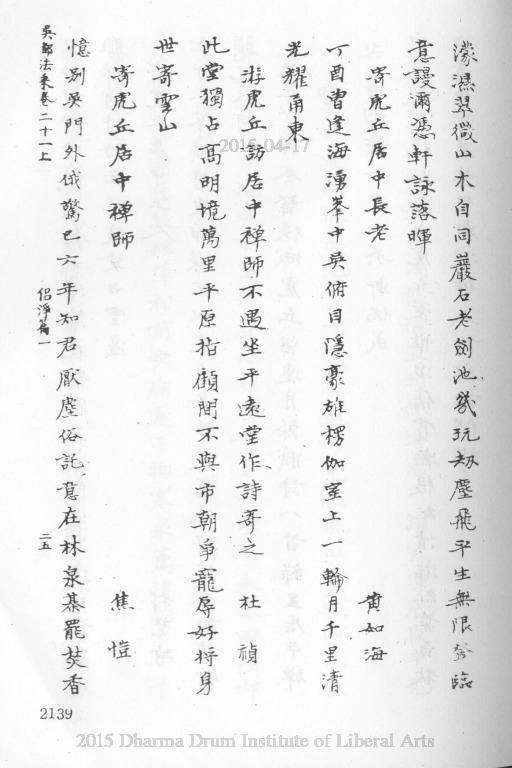 濛濕翠微山木自同巖石老劍池幾玩劫塵飛平生無限登臨
意謾爾憑軒詠落暉
寄虎丘居中長老 黃如海
丁酉曾逢海湧峯中吳俯目隱豪雄楞伽室上一輪月千里清
光耀甬東
游虎丘訪居中禪師不遇坐平遠堂作詩寄之 杜禎
此堂獨占高明境萬里平原指顧間不與市朝爭寵辱好將身
世寄雲山
寄虎丘居中禪師 焦愷
憶別吳門外俄驚已六年知君厭塵俗託意在林泉棊罷焚香
吳都法乘卷二十一上 侶淨篇一 二五
2139
2016-04-17
2015 Dharma Drum Institute of Liberal Arts